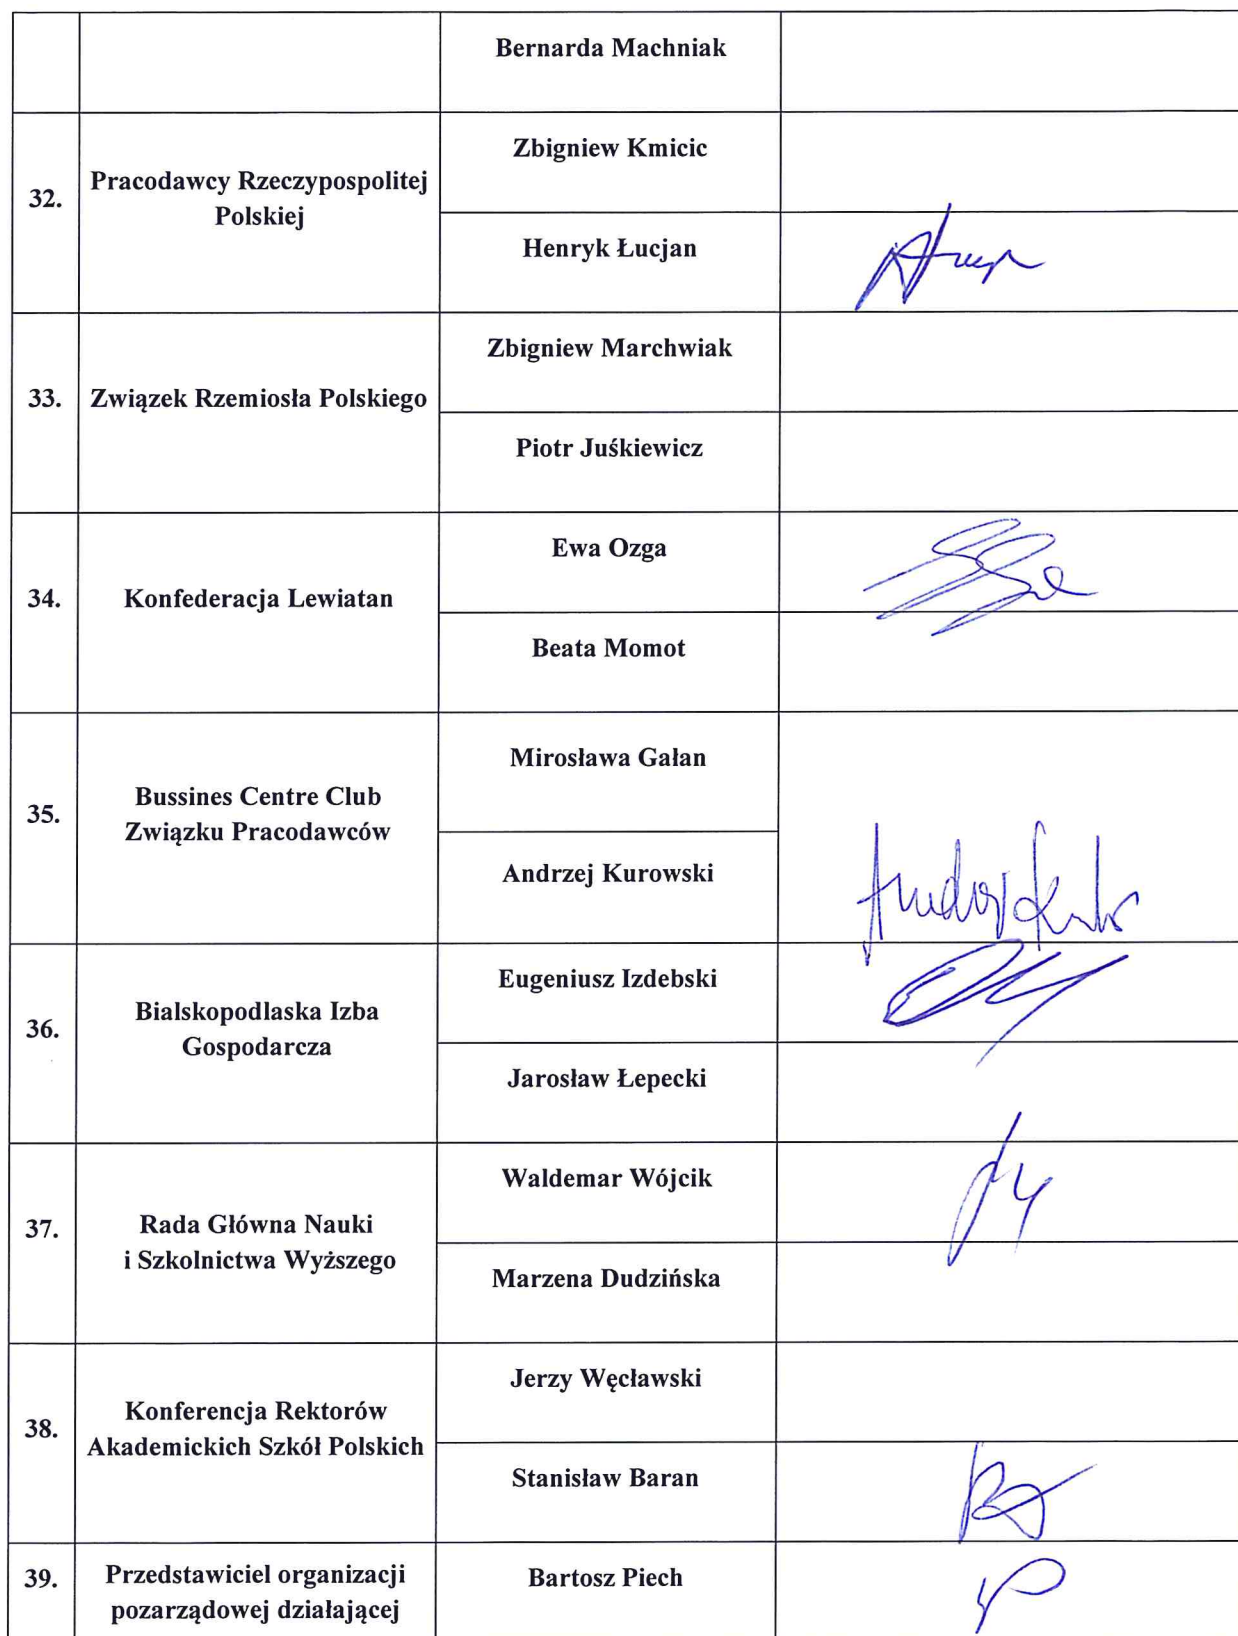 Bernarda Machniak
32.
Pracodawcy Rzeczypospolitej
Polskiej
Zbigniew Kmicic
Henryk Łucjan
33.
Związek Rzemiosła Polskiego
Zbigniew Marchwiak
Piotr Juśkiewicz
34.
Konfederacja Lewiatan
Ewa Ozga
Beata Momot
35.
Bussines Centre Club
Związku Pracodawców
Mirosława Gałan
Andrzej Kurowski
36.
Bialskopodlaska Izba
Gospodarcza
Eugeniusz Izdebski
Jarosław Łepecki
37.
Rada Główna Nauki
i Szkolnictwa Wyższego
Waldemar Wójcik
Marzena Dudzińska
38.
Konferencja Rektorów
Akademickich Szkół Polskich
Jerzy Węcławski
Stanisław Baran
39.
Przedstawiciel organizacji
pozarządowej działającej
Bartosz Piech